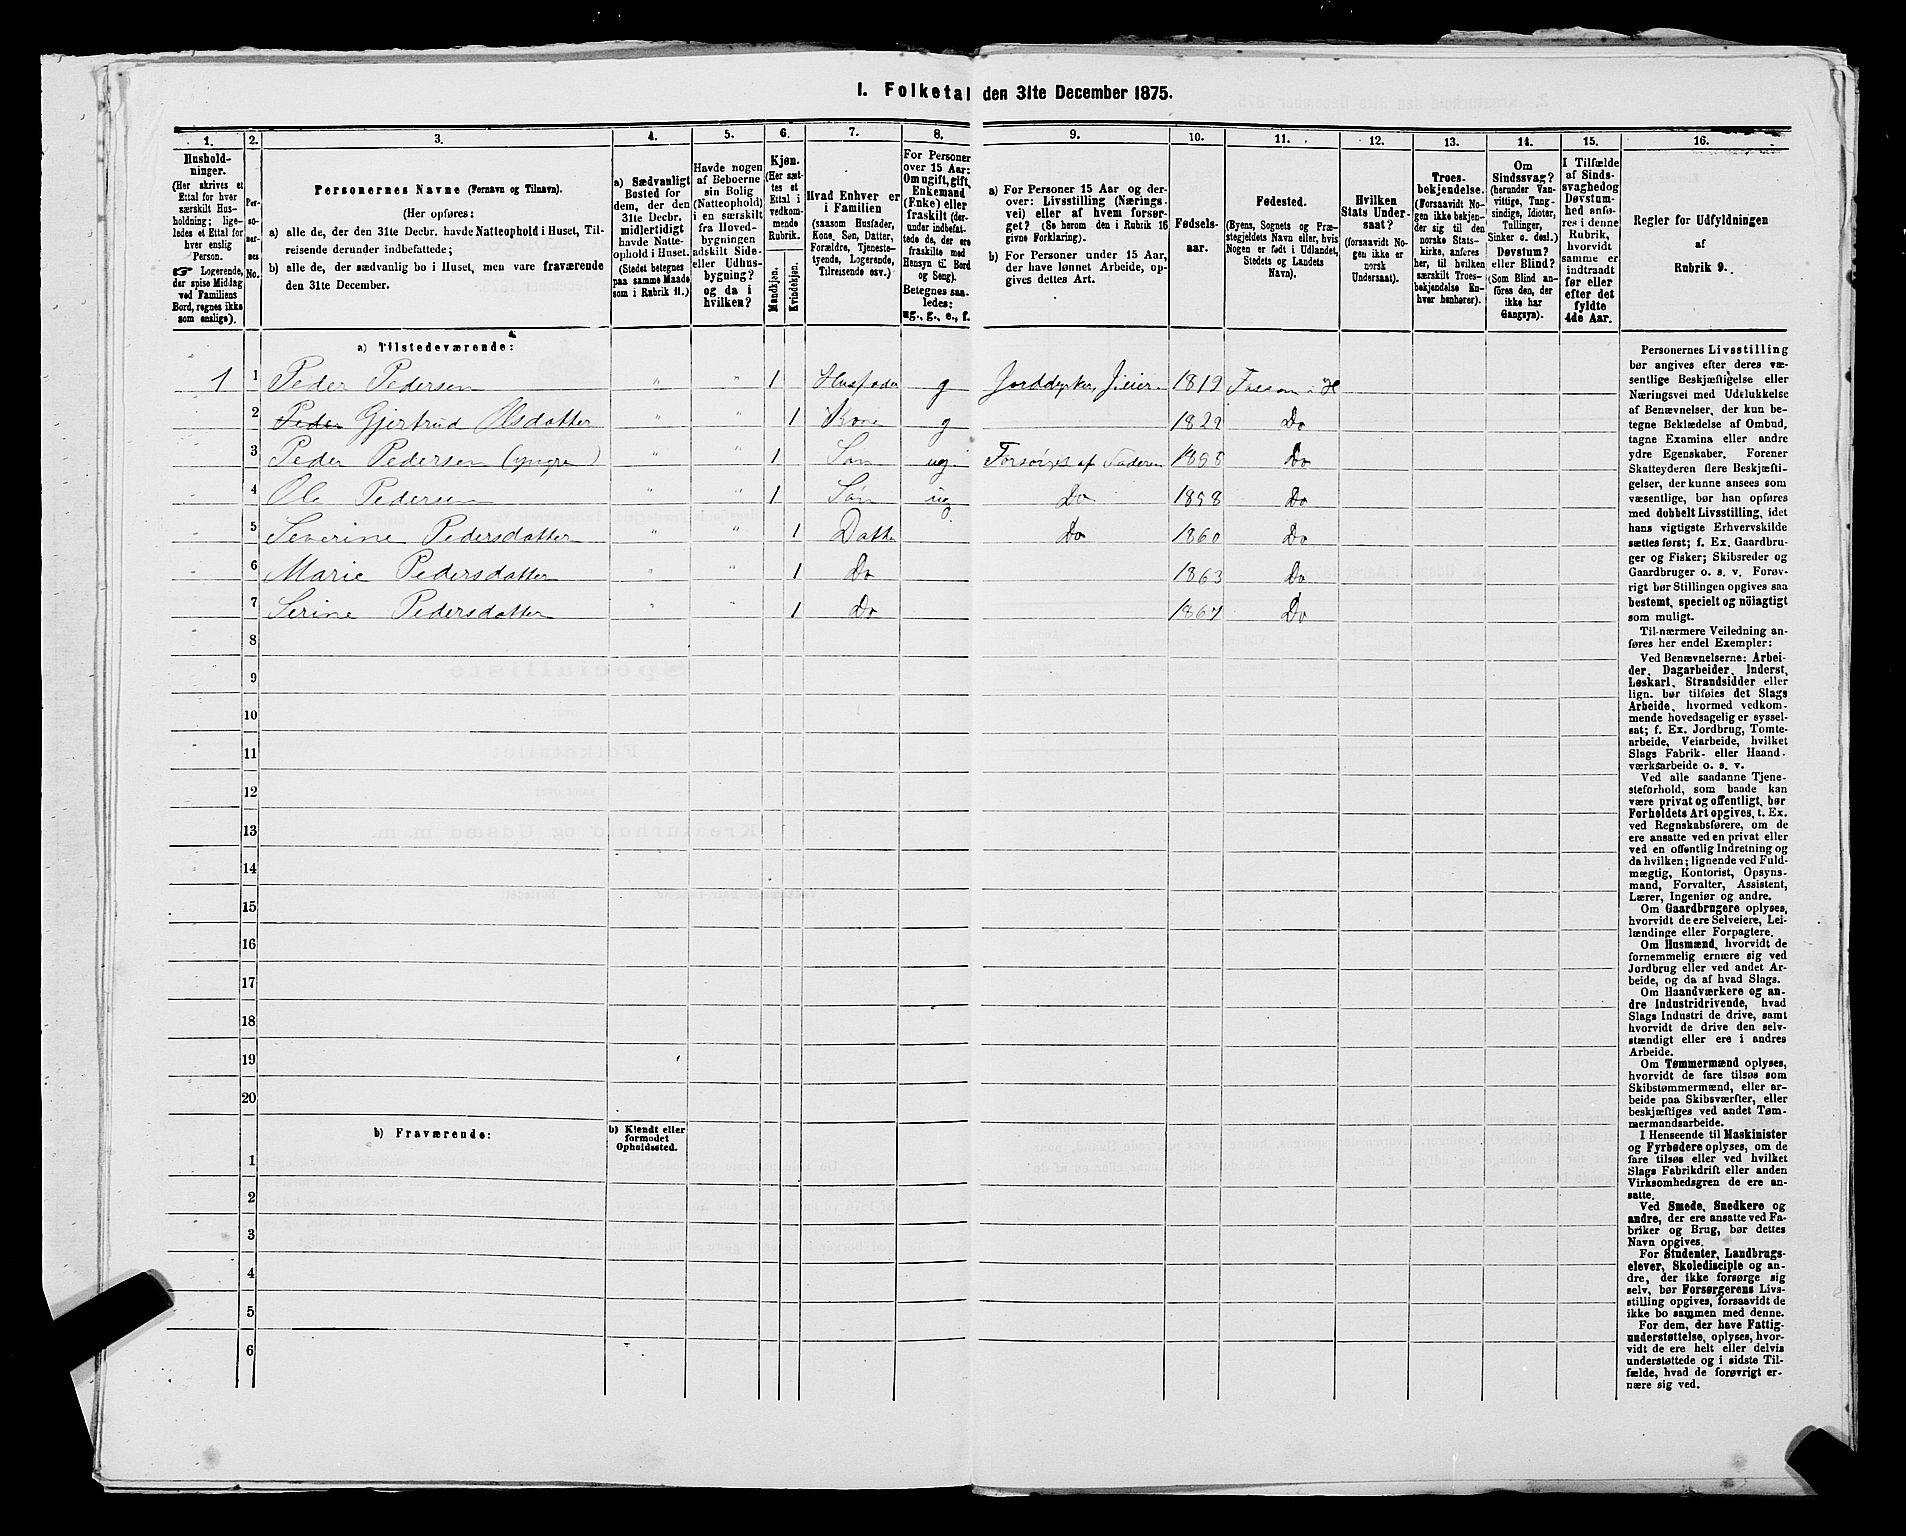 I. Folketal den 31te December 1875.
1. 2. 3. 4. 5. 6. 7. 8. 9. 10. 11. 12. 13. 14. 15. 16.
Hushold-
ninger.
(Her skrives et
Ettal for hver
særskilt Hus-
holdning; lige-
ledes et Ettal for
hver enslig
Person.
☞ Logerende,
der spise Middag
ved Familiens
Bord, regnes ikke
som enslige).
Per-
so-
ner-
nes
No.
Personernes Navne (Fornavn og Tilnavn).
(Her opføres:
a) alle de, der den 31te Decbr. havde Natteophold i Huset, Til-
reisende derunder indbefattede;
b) alle de, der sædvanlig bo i Huset, men vare fraværende
den 31te December.
a) Sædvanligt
Bosted for
dem, der den
31te Decbr.
midlertidigt
havde Natte-
ophold i Huset.
(Stedet betegnes
paa samme Maade
som i Rubrik 11.)
Havde nogen
af Beboerne
sin Bolig
(Natteophold)
i en særskilt
fra Hoved-
bygningen
adskilt Side-
eller Udhus-
bygning?
og da i
hvilken?
Kjøn.
(Her sæt-
tes et
Ettal i
vedkom-
mende
Rubrik.
Mandkjøn.
Kvindekjøn.
Hvad Enhver er
i Familien
(saasom Husfader,
Kone, Søn, Datter,
Forældre, Tjeneste-
tyende, Logerende,
Tilreisende osv.)
For Personer
over 15 Aar:
Om ugift, gift,
Enkemand
(Enke) eller
fraskilt (der-
under indbefat-
tede de, der ere
fraskilte med
Hensyn til Bord
og Seng).
Betegnes saa-
ledes:
ug., g., e., f.
a) For Personer 15 Aar og der-
over: Livsstilling (Nærings-
vei) eller af hvem forsør-
get? (Se herom den i Rubrik 16
givne Forklaring).
b) For Personer under 15 Aar,
der have lønnet Arbeide, op-
gives dettes Art.
Fødsels-
aar.
Fødested.
(Byens, Sognets og Præ-
stegjeldets Navn eller, hvis
Nogen er født i Udlandet,
Stedets og Landets
Navn).
Hvilken
Stats Under-
saat?
(forsaavidt No-
gen ikke er
norsk
Undersaat).
Troes-
bekjendelse.
(Forsaavidt No-
gen ikke bekjen-
der sig til den
norske Stats-
kirke, anføres
her, til hvilken
særskilt Troes-
bekjendelse En-
hver henhører).
Om
Sindssvag?
(herunder Van-
vittige, Tung-
sindige, Idioter,
Tullinger,
Sinker o. desl.)
Døvstum?
eller Blind?
(Som Blind an-
føres den, der
ikke har
Gangsyn).
I Tilfælde
af Sinds-
svaghed og
Døvstum-
hed anfø-
res i denne
Rubrik,
hvorvidt
samme er
indtraadt
før eller
efter det
fyldte
4de Aar.
Regler for Udfyldningen
af
Rubrik 9.
a) Tilstedeværende:
1 1 Peder Pedersen " " 1 Husfader g Jorddyrker, 1819
2 Peder Gjertrud Olsdatter " " 1 Kone g 1822 Do
3 Peder Pedersen (yngre) " " 1 Søn ug. Forsørges af Faderen 1855 Do
4 Ole Pedersen " " 1 Søn ug 1858 Do Do
5 Severine Pedersdatter " " 1 Datter Do 1860 Do
6 Marie Pedersdatter " " 1 Do 1863 Do
7 Serine Pedersdatter " " 1 Do 1867 Do
8
9
10
11
12
13
14
15
16
17
18
19
20
b) Fraværende:
b) Kjendt eller
formodet
Opholdssted.
1
2
3
4
5
6
Personernes Livsstilling
bør angives efter deres væ-
sentlige Beskjæftigelse eller
Næringsvei med Udelukkelse
af Benævnelser, der kun be-
tegne Beklædelse af Ombud,
tagne Examina eller andre
ydre Egenskaber. Forener
Skatteyderen flere Beskjæfti-
gelser, der kunne ansees som
væsentlige, bør han opføres
med dobbelt Livsstilling, idet
hans vigtigste Erhvervskilde
sættes først; f. Ex. Gaardbru-
ger og Fisker; Skibsreder og
Gaardbruger o. s. v. Forøv-
rigt bør Stillingen opgives saa
bestemt, specielt og nöiagtigt
som muligt.
Til nærmere Veiledning an-
føres her endel Exempler:
Ved Benævnelserne: Arbei-
der, Dagarbeider, Inderst,
Løskarl, Strandsidder eller
lign. bør tilføies det Slags
Arbeide, hvormed vedkom-
mende hovedsagelig er syssel-
sat; f. Ex. Jordbrug, Tomte-
arbeide, Veiarbeide, hvilket
Slags Fabrik- eller Haand-
værksarbeide o. s. v.
Ved alle saadanne Tjene-
steforhold, som baade kan
være privat og offentligt, bør
Forholdets Art opgives, t. Ex.
ved Regnskabsførere, om de
ere ansatte ved en privat eller
ved en offentlig Indretning og
da hvilken; lignende ved Fuld-
mægtig, Kontorist, Opsyns-
mand, Forvalter, Assistent,
Lærer, Ingeniør og andre.
Om Gaardbrugere oplyses,
hvorvidt de ere Selveiere, Lei-
lændinge eller Forpagtere.
Om Husmænd, hvorvidt de
fornemmelig ernære sig ved
Jordbrug eller ved andet Ar-
beide, og da af hvad Slags.
Om Haandværkere og an-
dre Industridrivende, hvad
Slags Industri de drive, samt
hvorvidt de drive den selv-
stændigt eller ere i andres
Arbeide.
Om Tømmermænd oplyses,
hvorvidt de fare tilsøs som
Skibstømmermænd, eller ar-
beide paa Skibsværfter, eller
beskjæftiges ved andet Tøm-
mermandsarbeide.
I Henseende til Maskinister
og Fyrbødere oplyses, om de
fare tilsøs eller ved hvilket
Slags Fabrikdrift eller anden
Virksomhedsgren de ere an-
satte.
Ved Smede, Snedkere og
andre, der ere ansatte ved Fa-
briker og Brug, bør dettes
Navn opgives.
For Studenter, Landbrugs-
elever, Skoledisciple og an-
dre, der ikke forsørge sig
selv, bør Forsørgerens Livs-
stilling opgives, forsaavidt de
ikke bo sammen med denne.
For dem, der have Fattig-
understøttelse, oplyses, hvor-
vidt de ere helt eller delvis
understøttede og i sidste Til-
fælde, hvad de forøvrigt er-
nære sig ved.